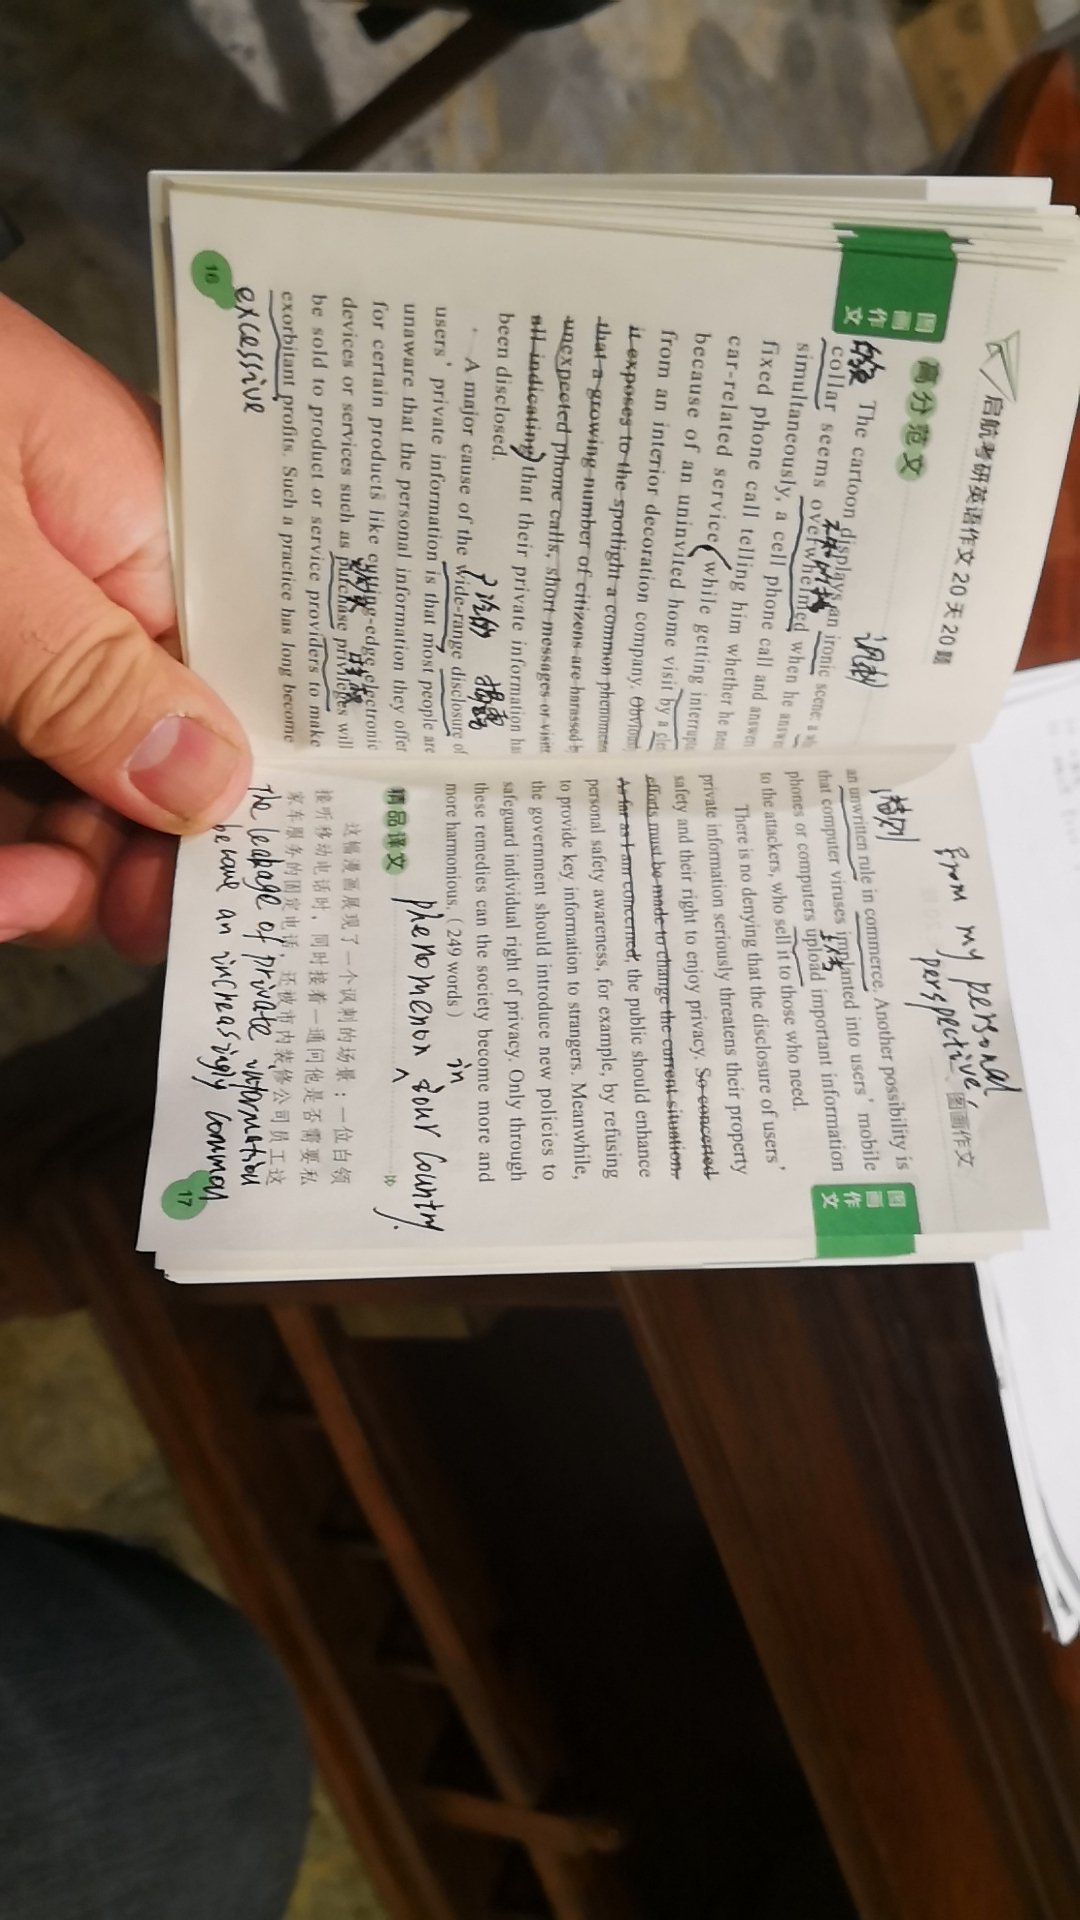 启航考研英语作文 20 天 20 题
图画作文
高分范文
The cartoon displays an ironic scene: a
讽刺
collar seems overwhelmed when he
simultaneously, a cell phone call and
fixed phone call telling him whether he
car-related service while getting
because of an uninvited home visit by a
from an interior decoration company.
it exposes to the spotlight a common
that a growing number of citizens are harassed
unexpected phone calls, short messages or
all indicating that their private information
been disclosed.
广泛的 揭露
A major cause of the wide-range disclosure of
users' private information is that most people are
unaware that the personal information they offer
for certain products like cutting-edge electronic
devices or services such as purchase privileges will
be sold to product or service providers to make
exorbitant profits. Such a practice has long become
excessive
16
From my personal
perspective,
图画作文
图画作文
an unwritten rule in commerce. Another possibility is
that computer viruses implanted into users' mobile
上传
phones or computers upload important information
to the attackers, who sell it to those who need.
There is no denying that the disclosure of users'
private information seriously threatens their property
safety and their right to enjoy privacy. So concerted
efforts must be made to change the current situation.
As far as I am concerned, the public should enhance
personal safety awareness, for example, by refusing
to provide key information to strangers. Meanwhile,
the government should introduce new policies to
safeguard individual right of privacy. Only through
these remedies can the society become more and
more harmonious. (249 words)
in
phenomenon our country.
精品译文
这幅漫画展现了一个讽刺的场景：一位白领
接听移动电话时，同时接着一通问他是否需要私
家车服务的固定电话，还被市内装修公司员工这
The leakage of private information
become an increasigly common
17